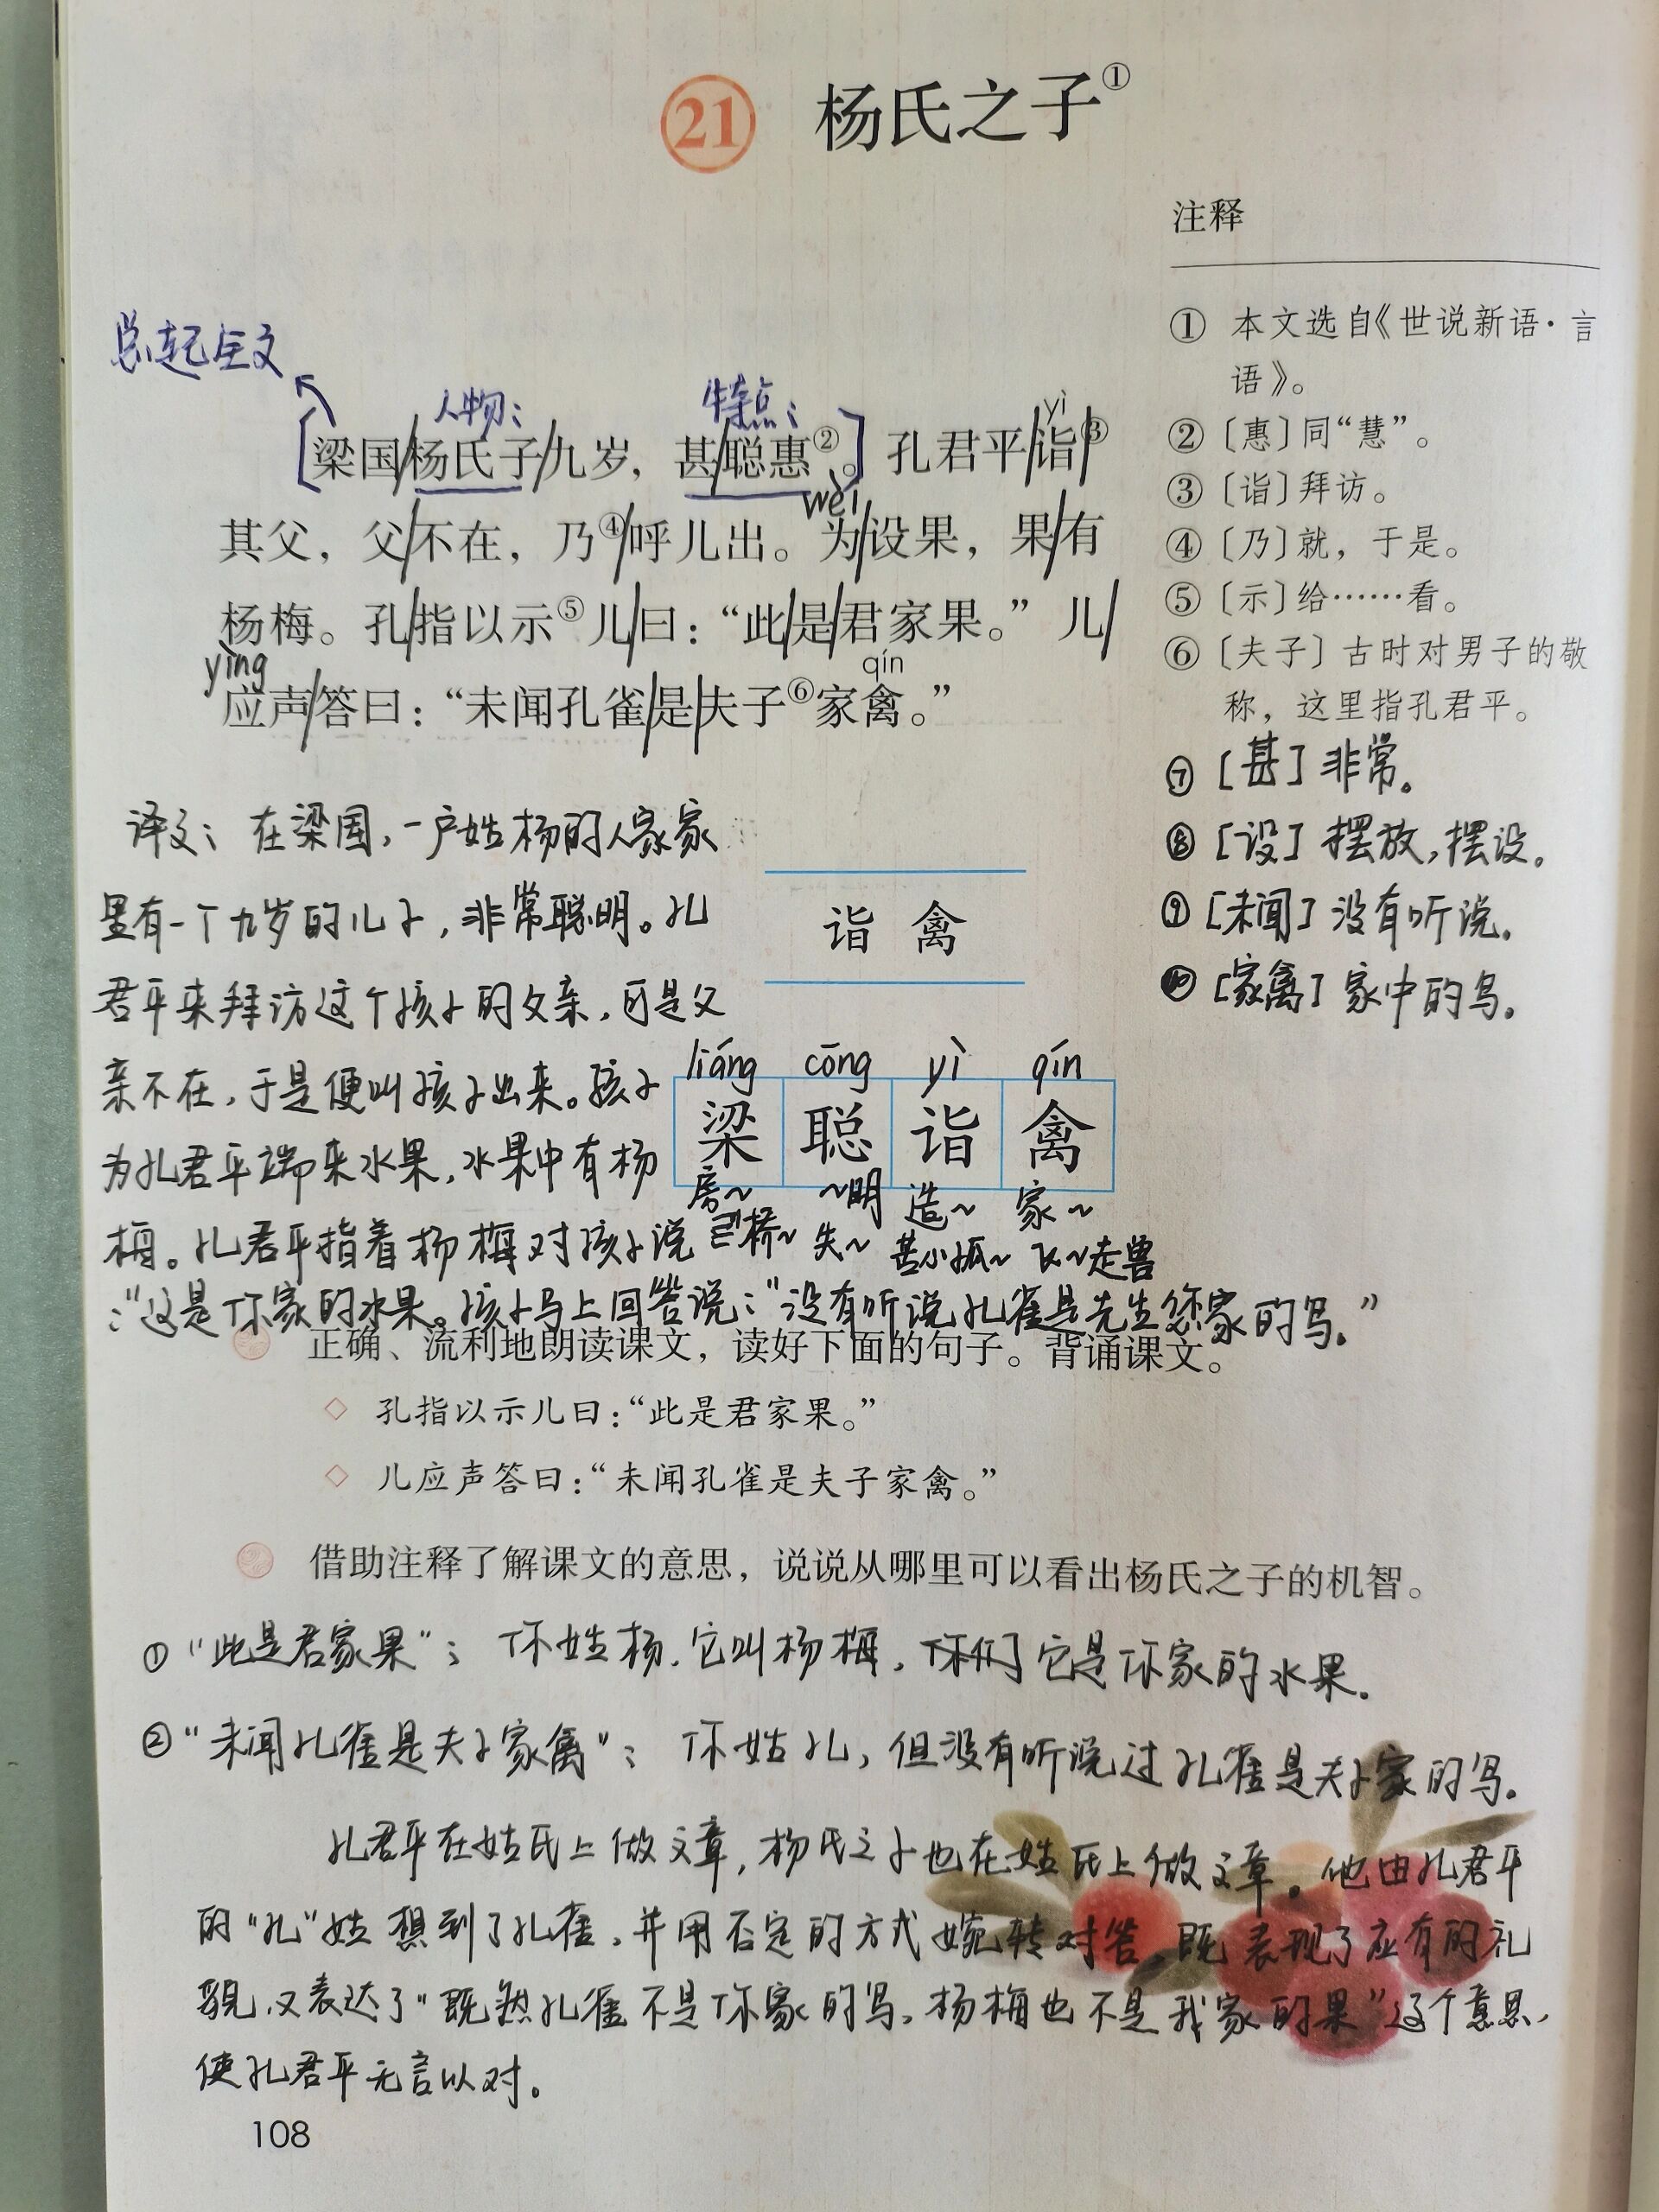 21 杨氏之子①
注释
① 本文选自《世说新语·言
语》。
②〔惠〕同“慧”。
③〔诣〕拜访。
④〔乃〕就，于是。
⑤〔示〕给……看。
⑥〔夫子〕古时对男子的敬
称，这里指孔君平。
⑦［甚］非常。
⑧［设］摆放，摆设。
⑨［未闻］没有听说。
⑩［家禽］家中的鸟。
总起全文
人物： 特点：
yì
[梁国/杨氏子/九岁，甚/聪惠②。] 孔君平/诣/③
wèi
其父，父/不在，乃④/呼儿出。为/设果，果/有
杨梅。孔/指以示⑤儿/曰：“此/是/君家果。”儿/
yìng qín
应声/答曰：“未闻孔雀/是/夫子⑥家禽。”
译文：在梁国，一户姓杨的人家家
里有一个九岁的儿子，非常聪明。孔
君平来拜访这个孩子的父亲，可是父
亲不在，于是便叫孩子出来。孩子
为孔君平端来水果，水果中有杨
梅。孔君平指着杨梅对孩子说
：“这是你家的水果。孩子马上回答说：“没有听说孔雀是先生您家的鸟。”
诣 禽
liáng cōng yì qín
梁 聪 诣 禽
房~ ~明 造~ 家~
桥~ 失~ 苦心孤~ 飞~走兽
正确、流利地朗读课文，读好下面的句子。背诵课文。
◇ 孔指以示儿曰：“此是君家果。”
◇ 儿应声答曰：“未闻孔雀是夫子家禽。”
借助注释了解课文的意思，说说从哪里可以看出杨氏之子的机智。
①“此是君家果”： 你姓杨，它叫杨梅，你们它是你家的水果。
②“未闻孔雀是夫子家禽”： 你姓孔，但没有听说过孔雀是夫子家的鸟。
孔君平在姓氏上做文章，杨氏之子也在姓氏上做文章。他由孔君平
的“孔”姓想到了孔雀，并用否定的方式婉转对答，既表现了应有的礼
貌，又表达了“既然孔雀不是你家的鸟，杨梅也不是我家的果”这个意思，
使孔君平无言以对。
108